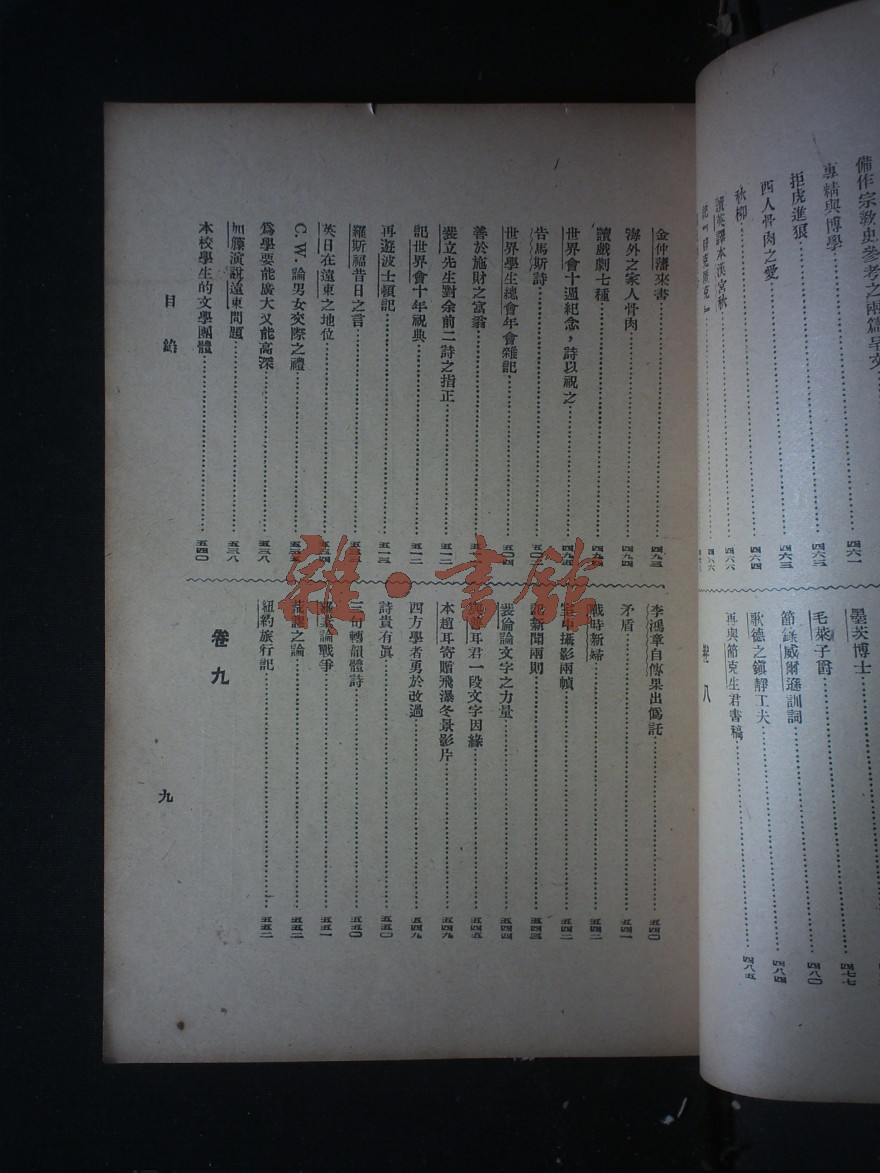 備作宗教史參考之兩篇呈文
專精與博學……四六一
拒虎進狼……四六三
西人骨肉之愛……四六三
秋柳……四六四
讀英譯本漢宮秋……四六六
墨茨博士……四七七
毛萊子爵……四八〇
節錄威爾遜訓詞……四八四
歌德之鎮靜工夫
再與節克生君書稿……四八五
卷八
金仲藩來書……四九三
海外之家人骨肉……四九四
讀戲劇七種……四九四
世界會十週紀念，詩以祝之……四九五
告馬斯詩……五〇
世界學生總會年會雜記……五〇四
善於施財之富翁……五一
裴立先生對余前二詩之指正……五一二
記世界會十年祝典……五一二
再遊波士頓記……五一三
羅斯福昔日之言……五三
英日在遠東之地位
C.W.論男女交際之禮
為學要能廣大又能高深……五三八
加籐演說遠東問題……五三八
本校學生的文學團體……五四〇
李鴻章自傳果出偽託……五四〇
矛盾……五四一
戰時新婦……五四二
室中攝影兩幀……五四二
記新聞兩則……五四三
裴倫論文字之力量……五四四
普耳君一段文字因緣……五四五
本趙耳寄贈飛瀑冬景影片……五四九
四方學者勇於改過……五四九
詩貴有真……五五〇
三句轉韻體詩……五五〇
論戰爭……五五一
之論……五五二
紐約旅行記……五五二
卷九
目錄
九
雜·書館